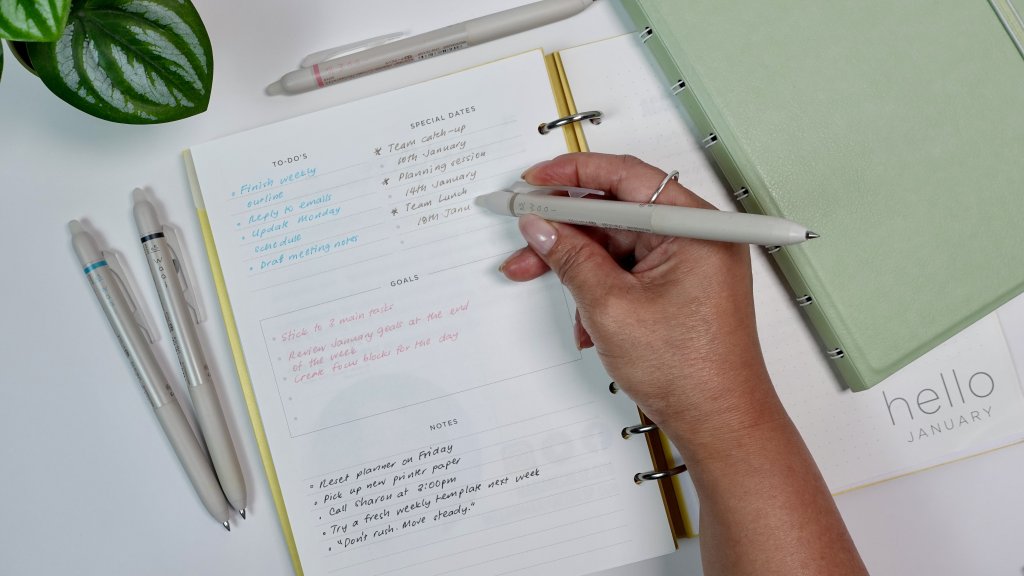 TO-DO'S
• Finish weekly
outline
• Reply to emails
• Update Monday
schedule
• Draf meeting notes
SPECIAL DATES
* Team catch-up
10th January
* Planning session
14th January
* Team Lunch
18th Janu
GOALS
• Stick to 3 main tasks
• Review January goals at the end
of the week
• Create focus blocks for the day
NOTES
• Reset planner on Friday
• Pick up new printer paper
• Call Sharon at 3:00pm
• Try a fresh weekly template next week
• "Don't rush. Move steady."
hello
JANUARY